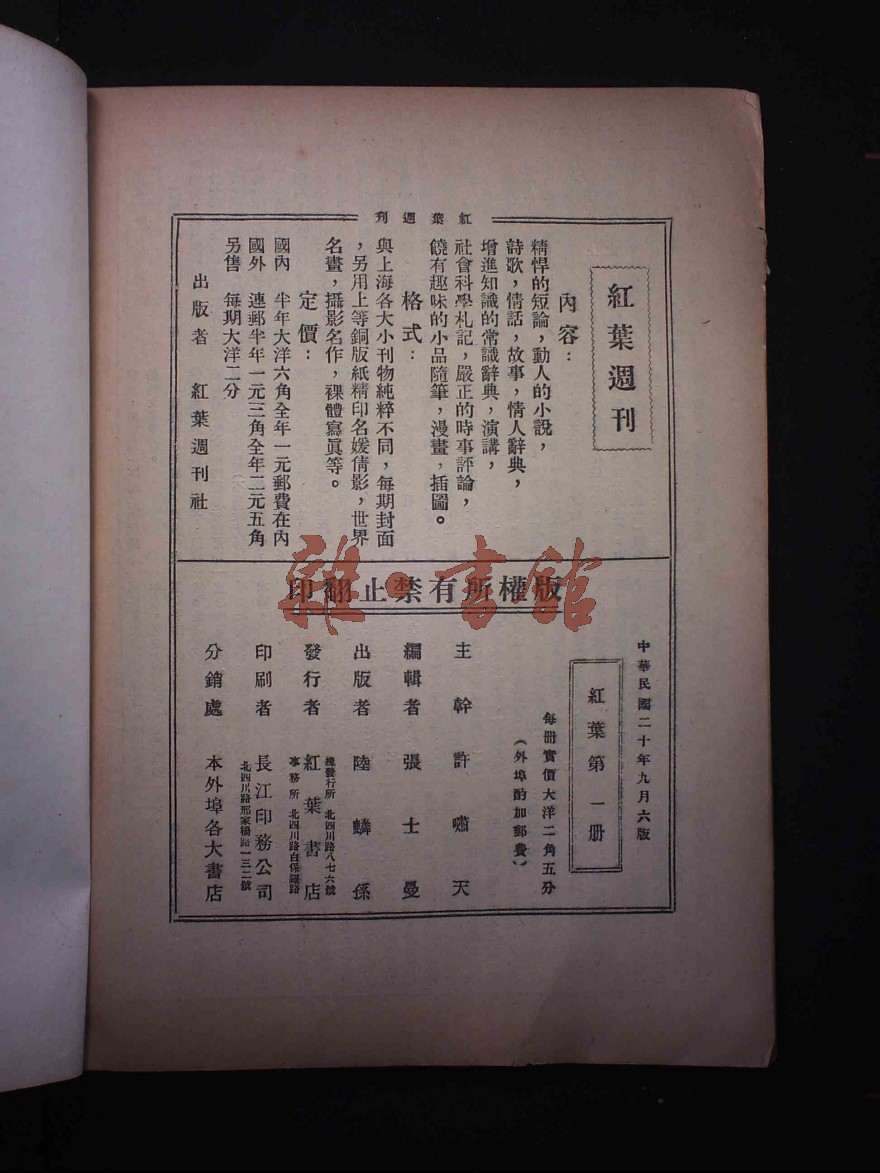 紅葉週刊
紅葉週刊
內容：
精悍的短論，動人的小說，
詩歌，情話，故事，情人辭典，
增進知識的常識辭典，演講，
社會科學札記，嚴正的時事評論，
饒有趣味的小品隨筆，漫畫，插圖。
格式：
與上海各大小刊物純粹不同，每期封面
，另用上等銅版紙精印名媛倩影，世界
名畫，攝影名作，裸體寫眞等。
定價：
國內　半年大洋六角全年一元郵費在內
國外　連郵半年一元三角全年二元五角
另售　每期大洋二分
出版者　紅葉週刊社
版權所有禁止翻印
雜·書館
中華民國二十年九月六版
紅葉第一册
每册實價大洋二角五分
（外埠酌加郵費）
主幹　許嘯天
編輯者　張士曼
出版者　陸鱗孫
發行者　紅葉書店
總發行所　北四川路八七六號
事務所　北四川路白保羅路
印刷者　長江印務公司
北四川路邢家橋路一三二號
分銷處　本外埠各大書店